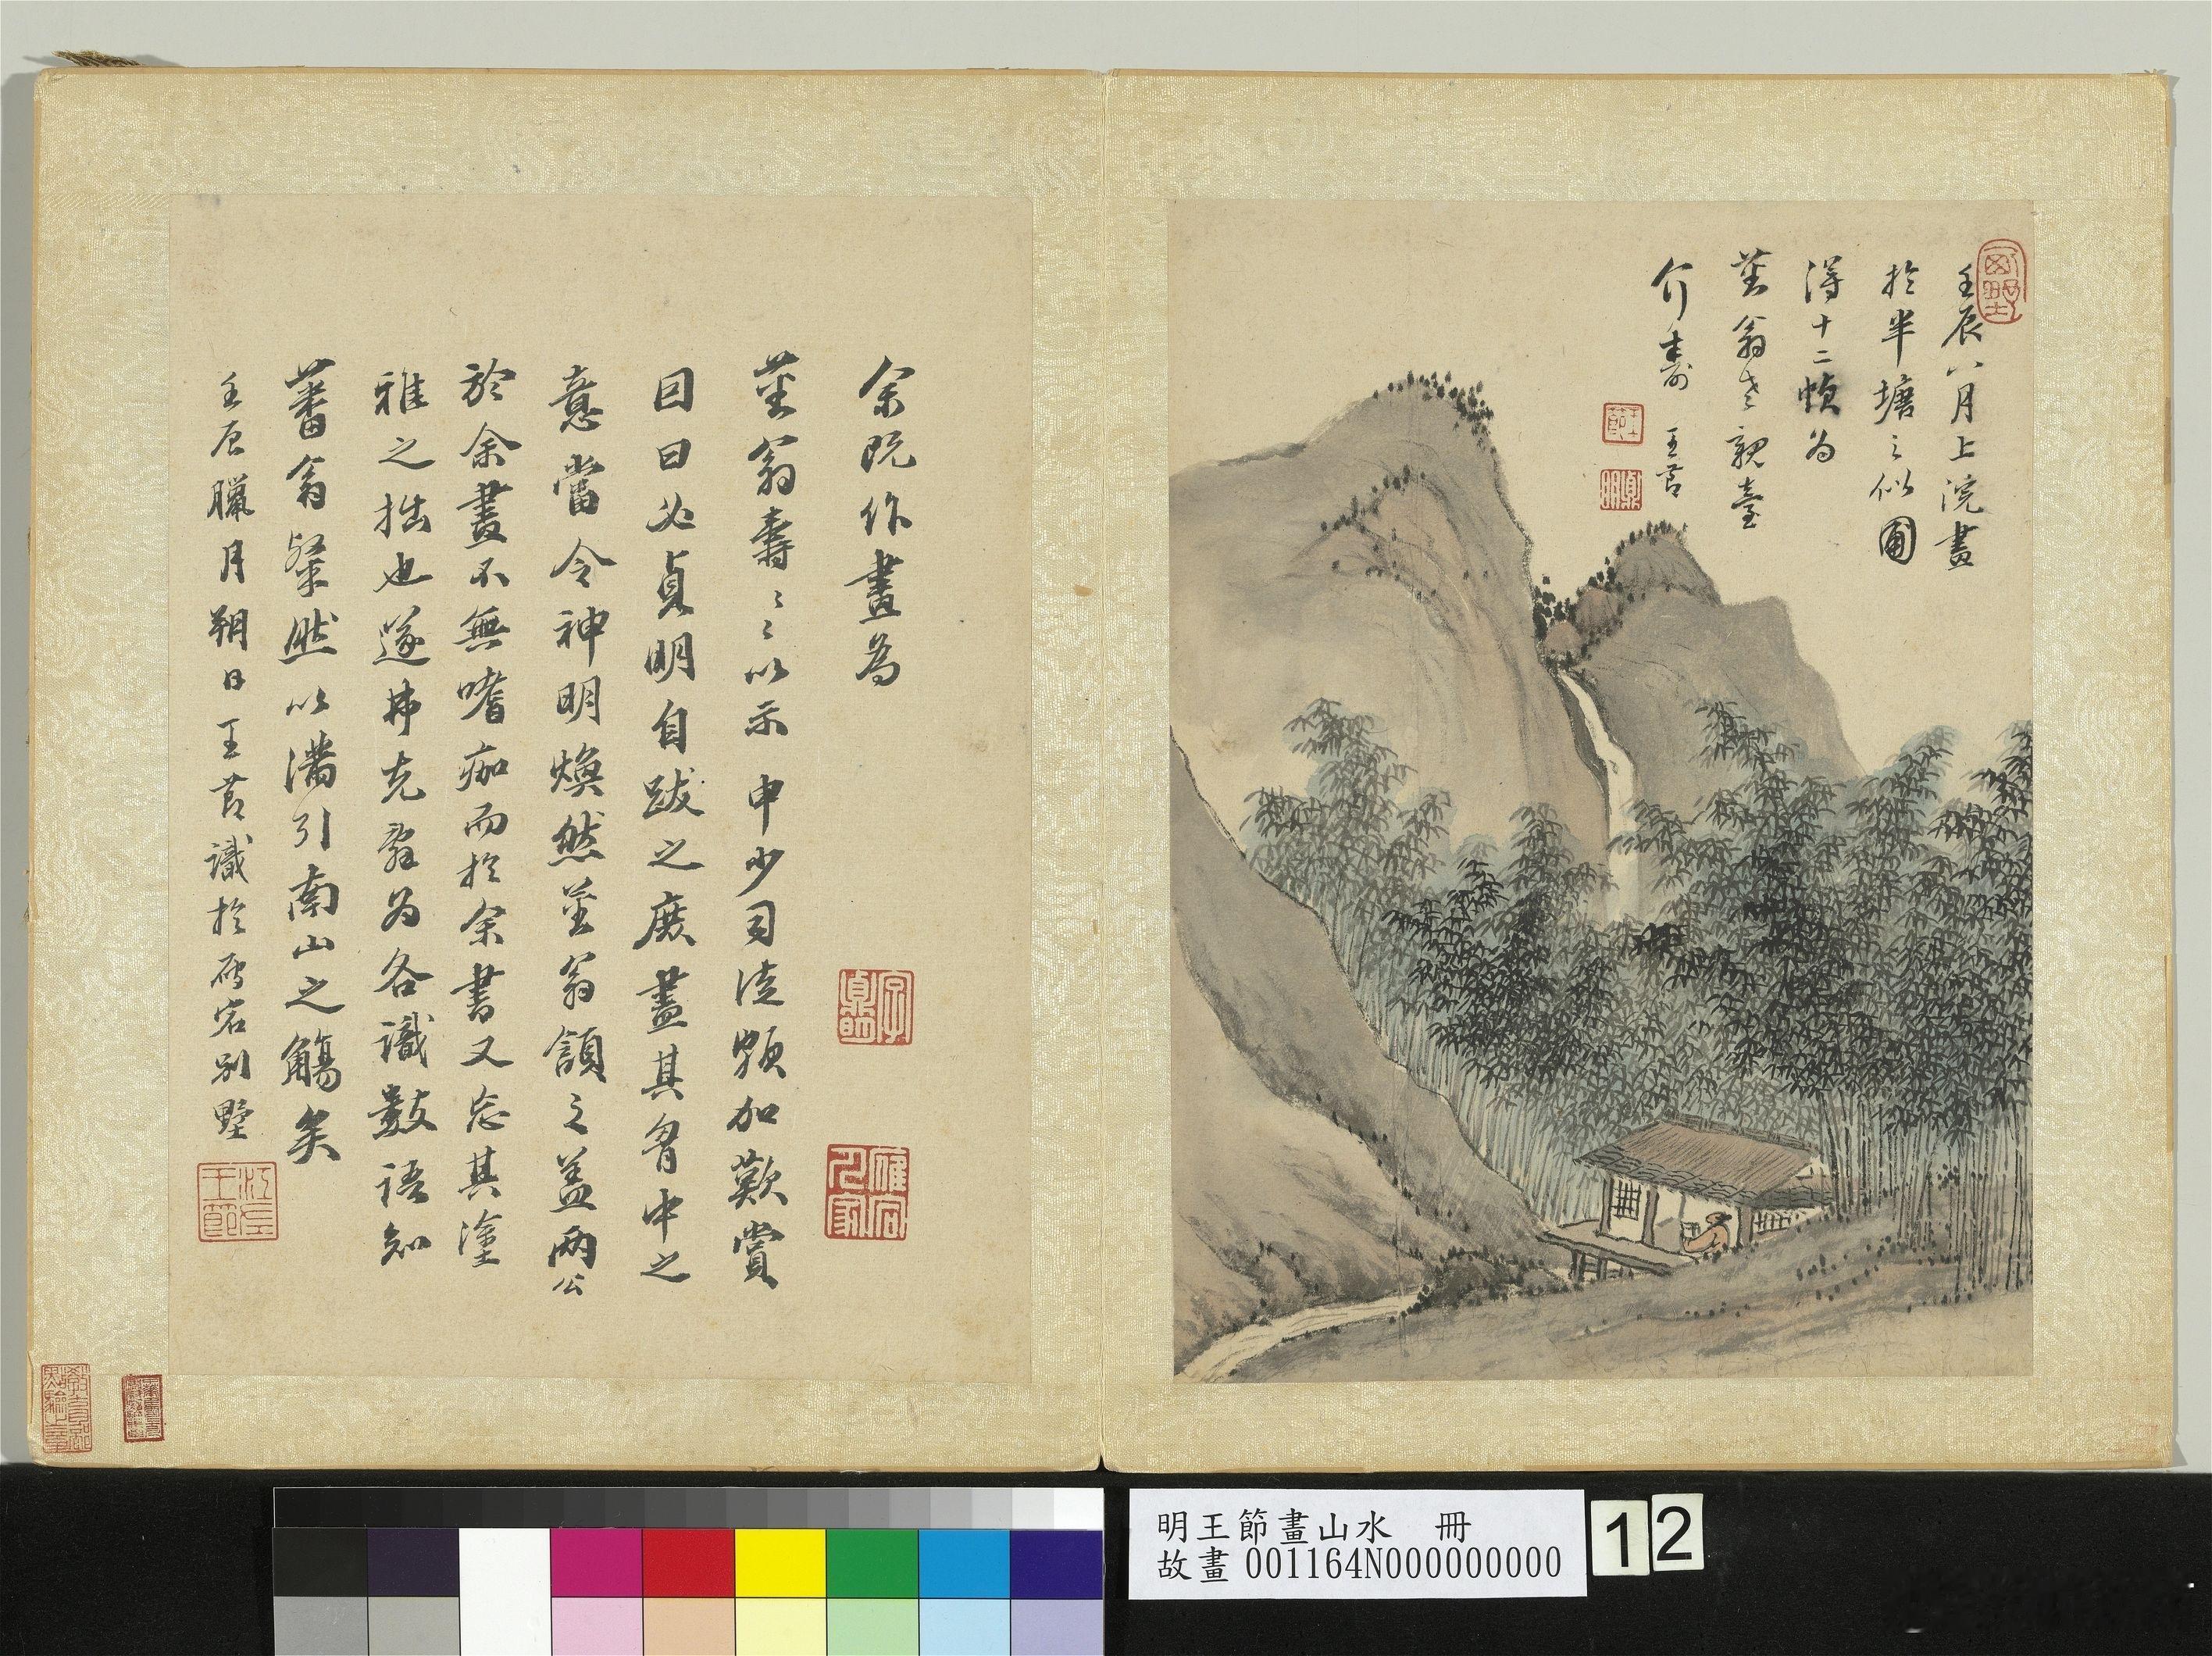 壬辰八月上浣畫
於半塘之似圃
得十二幀為
翁老親臺
介壽 王節
余既作畫為
翁壽之以示申少司徒頻加歎賞
因曰必貞明自跋之庶盡其胷中之
意當令神明煥然翁頷之盖兩公
於余畫不無嗜痂而於余書又忘其塗
雅之拙也遂弗克辭為各識數語知
翁粲然以滿引南山之觴矣
壬辰臘月朔日王節識於別墅
王節
貞明
明王節畫山水 冊
故畫 001164N000000000
12